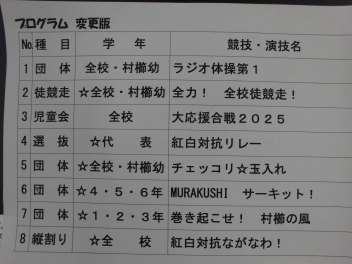 プログラム 変更版
No. 種目 学年 競技・演技名
1 団体 全校・村櫛幼 ラジオ体操第1
2 徒競走 ☆全校・村櫛幼 全力! 全校徒競走!
3 児童会 全校 大応援合戦2025
4 選抜 ☆代表 紅白対抗リレー
5 団体 ☆全校・村櫛幼 チェッコリ☆玉入れ
6 団体 ☆4・5・6年 MURAKUSHI サーキット!
7 団体 ☆1・2・3年 巻き起こせ! 村櫛の風
8 縦割り ☆全校 紅白対抗ながなわ!